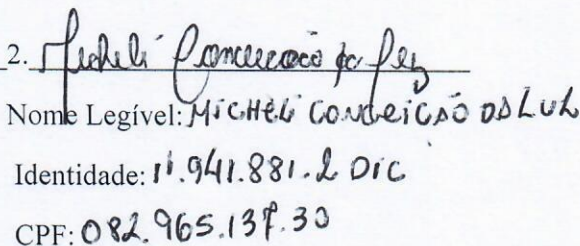 2. Micheli Conceição da Luz
Nome Legível: MICHELI CONCEICÃO DA LUZ
Identidade: 11.941.881.2 DIC
CPF: 082.965.137.30